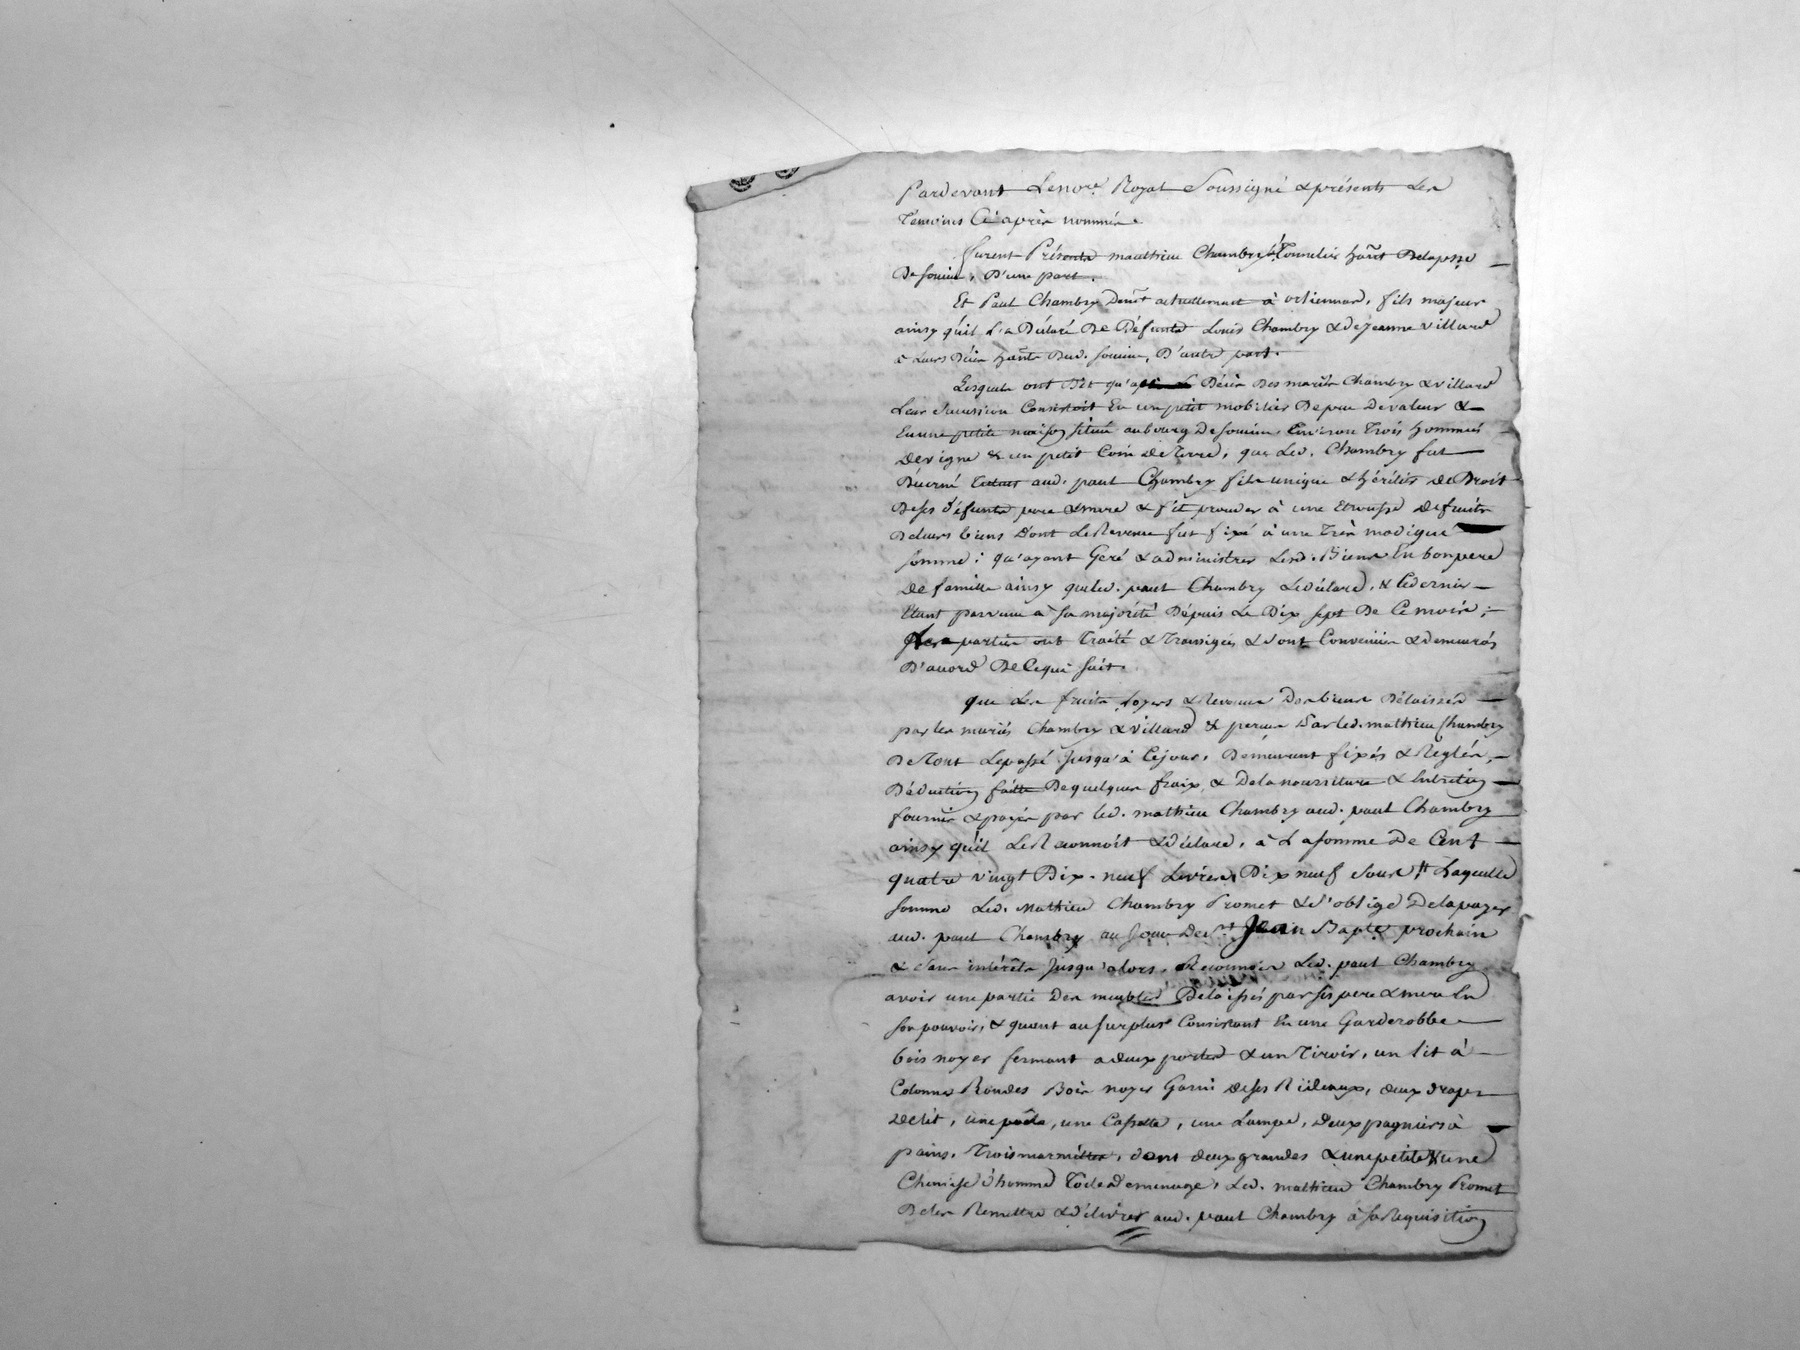 Pardevant Le no.re Royal Soussigné & présents Les
Temoins Cé après nommés.
furent Présents matthieu Chambry Tonnelier ha~nt
De soucieu, D'une part.
Et Paul Chambry Deme~t actuellement à orlienuas, fils majeur
ainsy qu'il L'a Déclaré De Défunts Louis Chambry & de jeanne villard
à Leurs Décès ha~nts Dud. soucieu, D'autre part.
Lesquels ont Dit qu'au Décès Des mariés Chambry & villard
Leur Succession Consistoit En un petit mobilier De peu De valeur &
En une petite maison située au bourg De soucieu, Environ Trois hommées
De vigne & un petit Coin de Terre, que Led. Chambry fut
Décerné Tuteur aud. paul Chambry fils unique & héritier de Droit
De ses défunts pere & mere & fit proceder à une Etrousse De fruits
De leurs biens Dont Le Revenu fut fixé à une Très modique
somme : qu'ayant Geré & administrer Lesd. Biens En bon pere
De famille ainsy que led. paul Chambry Le déclare, & Ce dernier
Etant parvenu à sa majorité Dépuis Le Dix sept De Ce mois ;
Les parties ont Traité & Transigés & sont Convenües & demeurés
D'accord De Ce qui suit.
que Les fruits, loyers & Revenus Des biens Délaissés
par les mariés Chambry & villard & perçus Par led. mathieu Chambry
De Tout Le passé jusqu'à Ce jour, Demeurant fixés & Reglés,
Déduction faitte De quelques fraix, & De la nourriture & Entretien
fournis & payés par led. mathieu Chambry aud. paul Chambry
ainsy qu'il Le Reconnoit & déclare, à La somme De Cent
quatre vingt Dix-neuf Livres Dix neuf sous, Laquelle
somme Led. Mathieu Chambry Promet & s'oblige De la payer
aud. paul Chambry au Jour De St Jean Bapte prochain
& sans intérêts Jusqu'alors. Reconnois Led. paul Chambry
avoir une partie Des meubles Delaissés par ses pere & mere En
son pouvoir, & quant au surplus Consistant En une Garderobbe
bois noyer fermant a deux portes & un Tiroir, un lit à
Colonnes Rondes Bois noyer Garni de ses Rideaux, deux draps
De lit, une poële, une Cassette, une Lampe, Deux pagniers à
pains, Trois marmittes, dont deux grandes & une petite & une
Chemise d'homme Toile de menage, Led. mathieu Chambry Promet
De les Remettre & délivrer aud. paul Chambry à sa Requisition